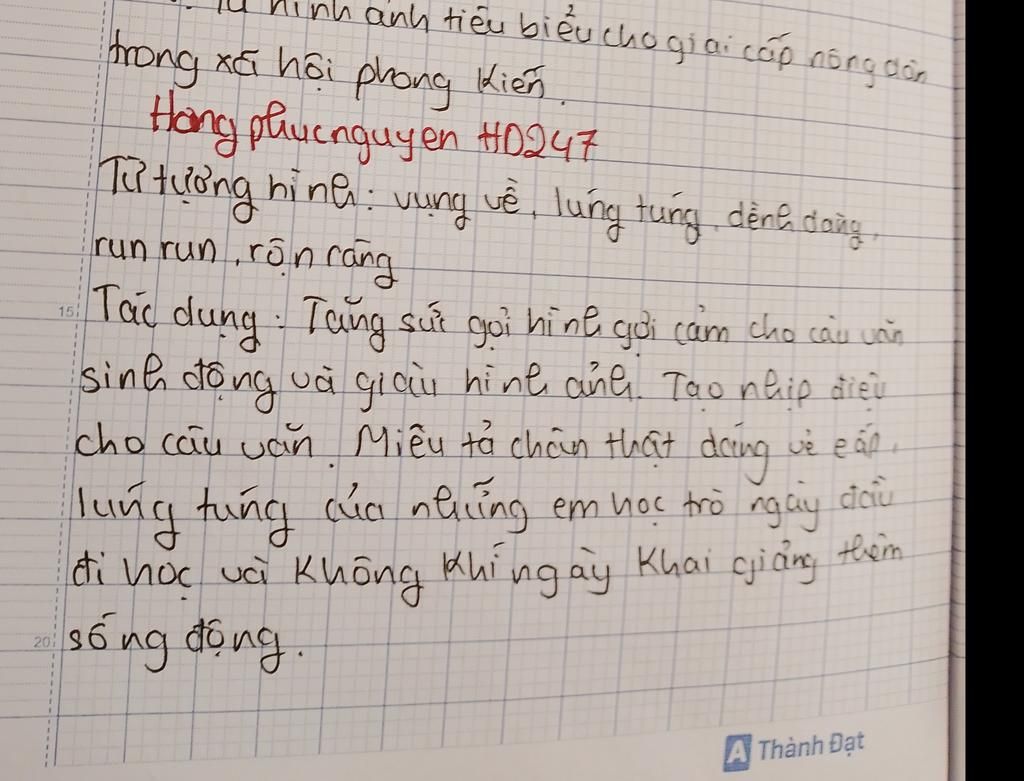 là hình ảnh tiêu biểu cho giai cấp nông dân
trong xã hội phong kiến.
Hongphucnguyen HD247
Từ tượng hình: vụng về, lúng túng, dềnh dàng,
run run, rộn ràng
15 Tác dụng: Tăng sức gợi hình gợi cảm cho câu văn
sinh động và giàu hình ảnh. Tạo nhịp điệu
cho câu văn. Miêu tả chân thật dáng vẻ
lúng túng của những em học trò ngày đầu
đi học và không khí ngày khai giảng thêm
20 sống động.
A Thành Đạt